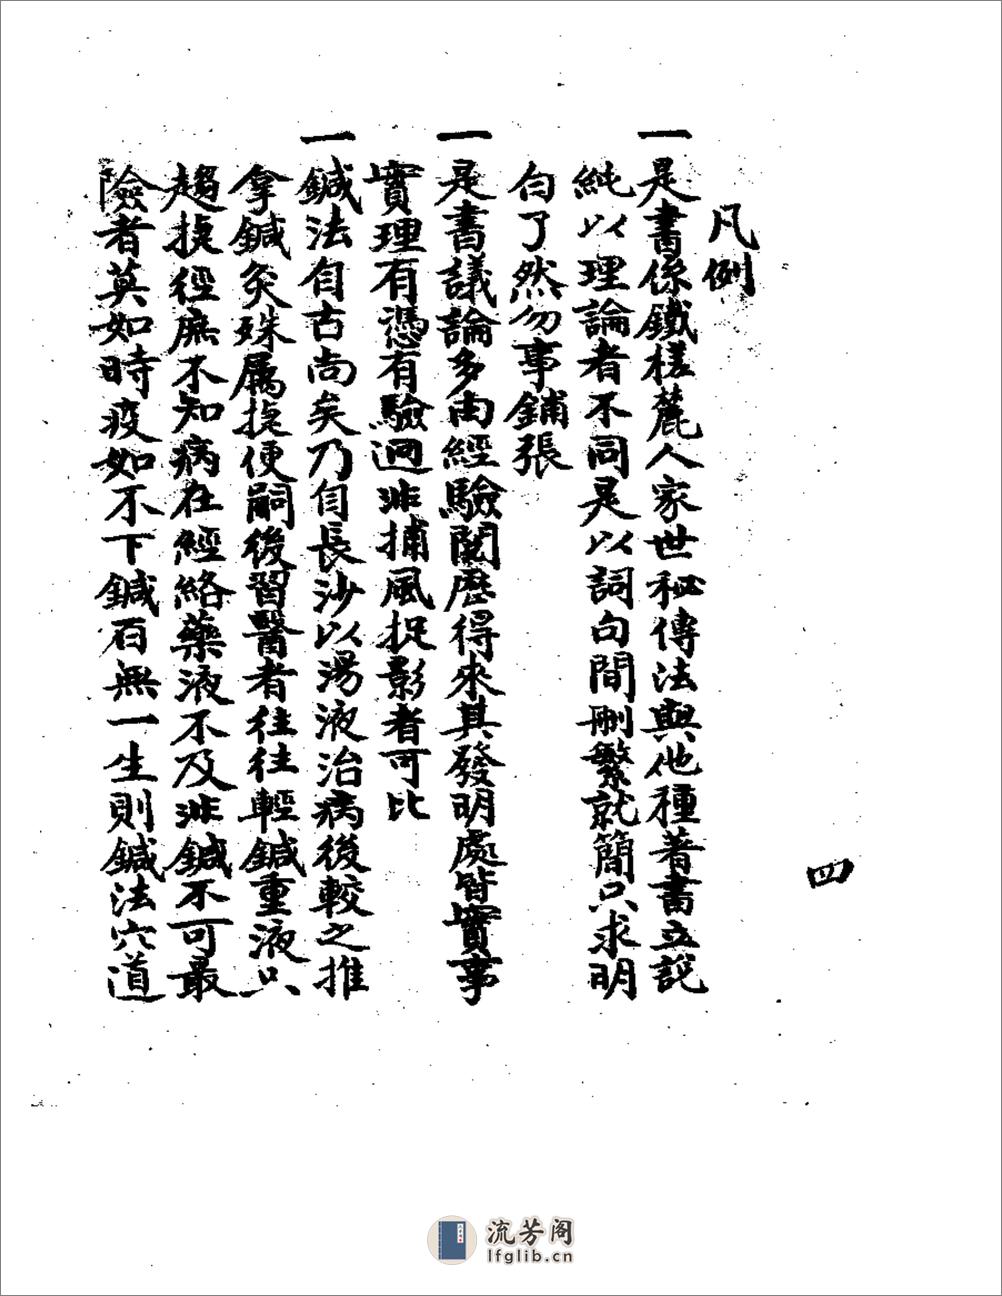 凡例
一是書係鐵槎麓人家世秘傳法與他種著書立說
純以理論者不同是以詞句間刪繁就簡只求明
白了然勿事鋪張
一是書議論多由經驗閱歷得來其發明處皆實事
實理有憑有驗迥非捕風捉影者可比
一鍼法自古尚矣乃自長沙以湯液治病後較之推
拿鍼灸殊屬捷便嗣後習醫者往往輕鍼重液只
趨捷徑庶不知病在經絡藥液不及非鍼不可最
險者莫如時疫如不下鍼百無一生則鍼法穴道
四
流芳阁
lfglib.cn